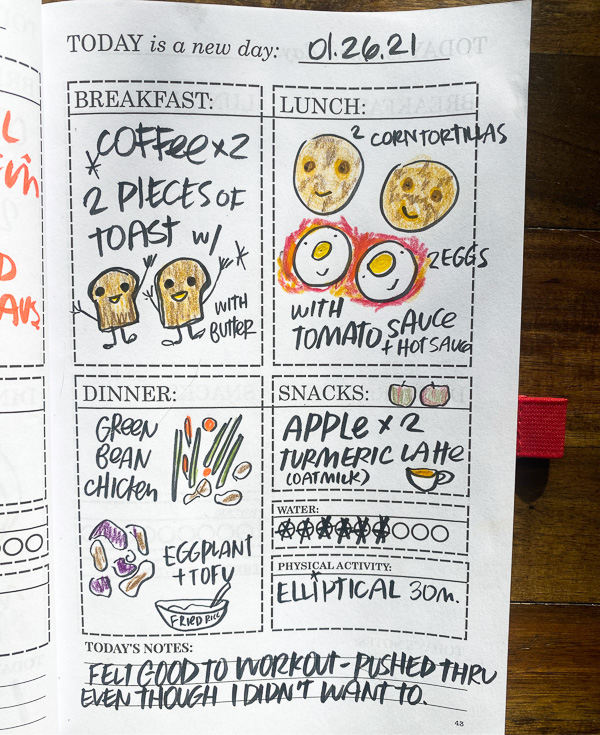 TODAY is a new day: 01.26.21
BREAKFAST:
COFFEE x2
2 PIECES OF
TOAST w/
WITH
BUTTER
LUNCH:
2 CORN TORTILLAS
2 EGGS
WITH
TOMATO SAUCE
+ HOT SAUCE
DINNER:
GREEN
BEAN
CHICKEN
EGGPLANT
+ TOFU
FRIED RICE
SNACKS:
APPLE x 2
TURMERIC LATTE
(OATMILK)
WATER:
PHYSICAL ACTIVITY:
ELLIPTICAL 30m.
TODAY'S NOTES:
FELT GOOD TO WORKOUT - PUSHED THRU
EVEN THOUGH I DIDN'T WANT TO.
43